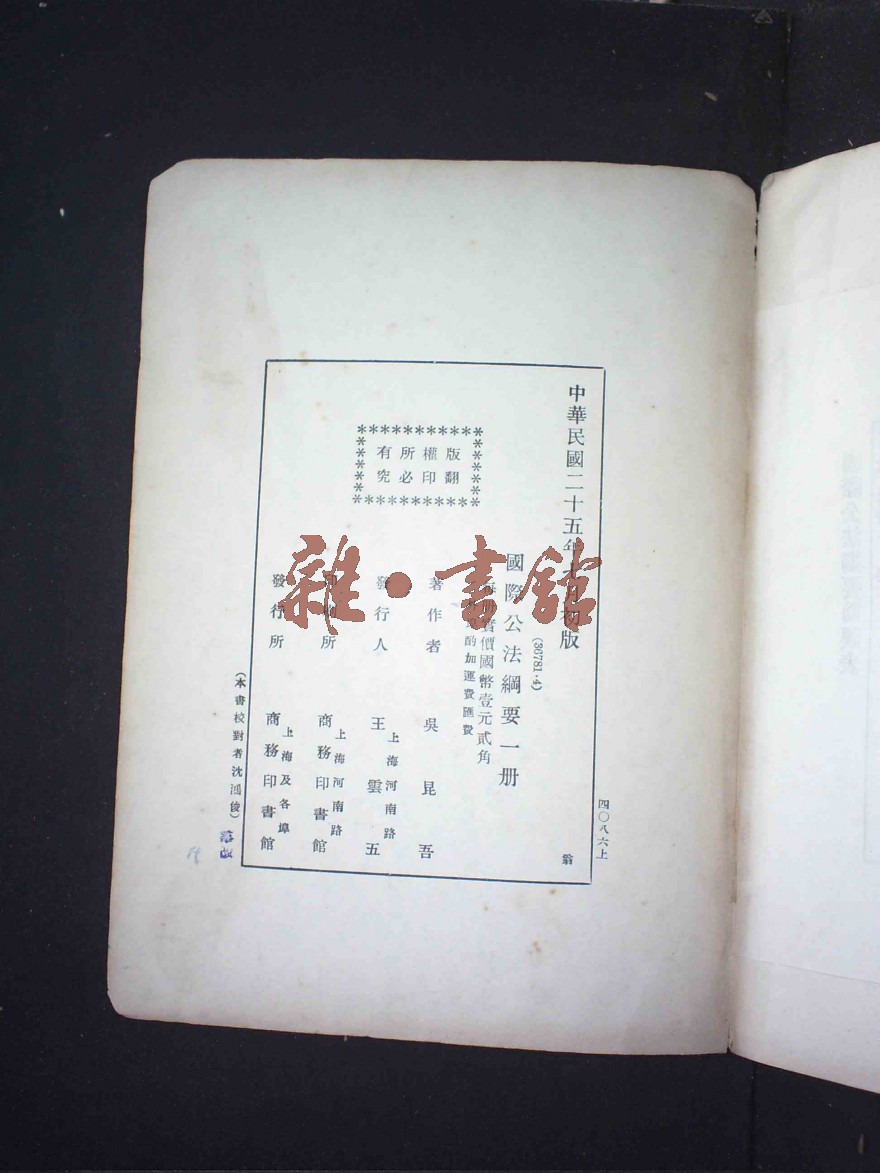 四〇八六上
中華民國二十五年 月初版
翁
(36781·4)
國際公法綱要一册
每册實價國幣壹元貳角
酌加運費匯費
版權所有
翻印必究
著作者 吳昆吾
上海河南路
發行人 王雲五
上海河南路
印刷所 商務印書館
上海及各埠
發行所 商務印書館
(本書校對者沈鴻俊)
雜·書館